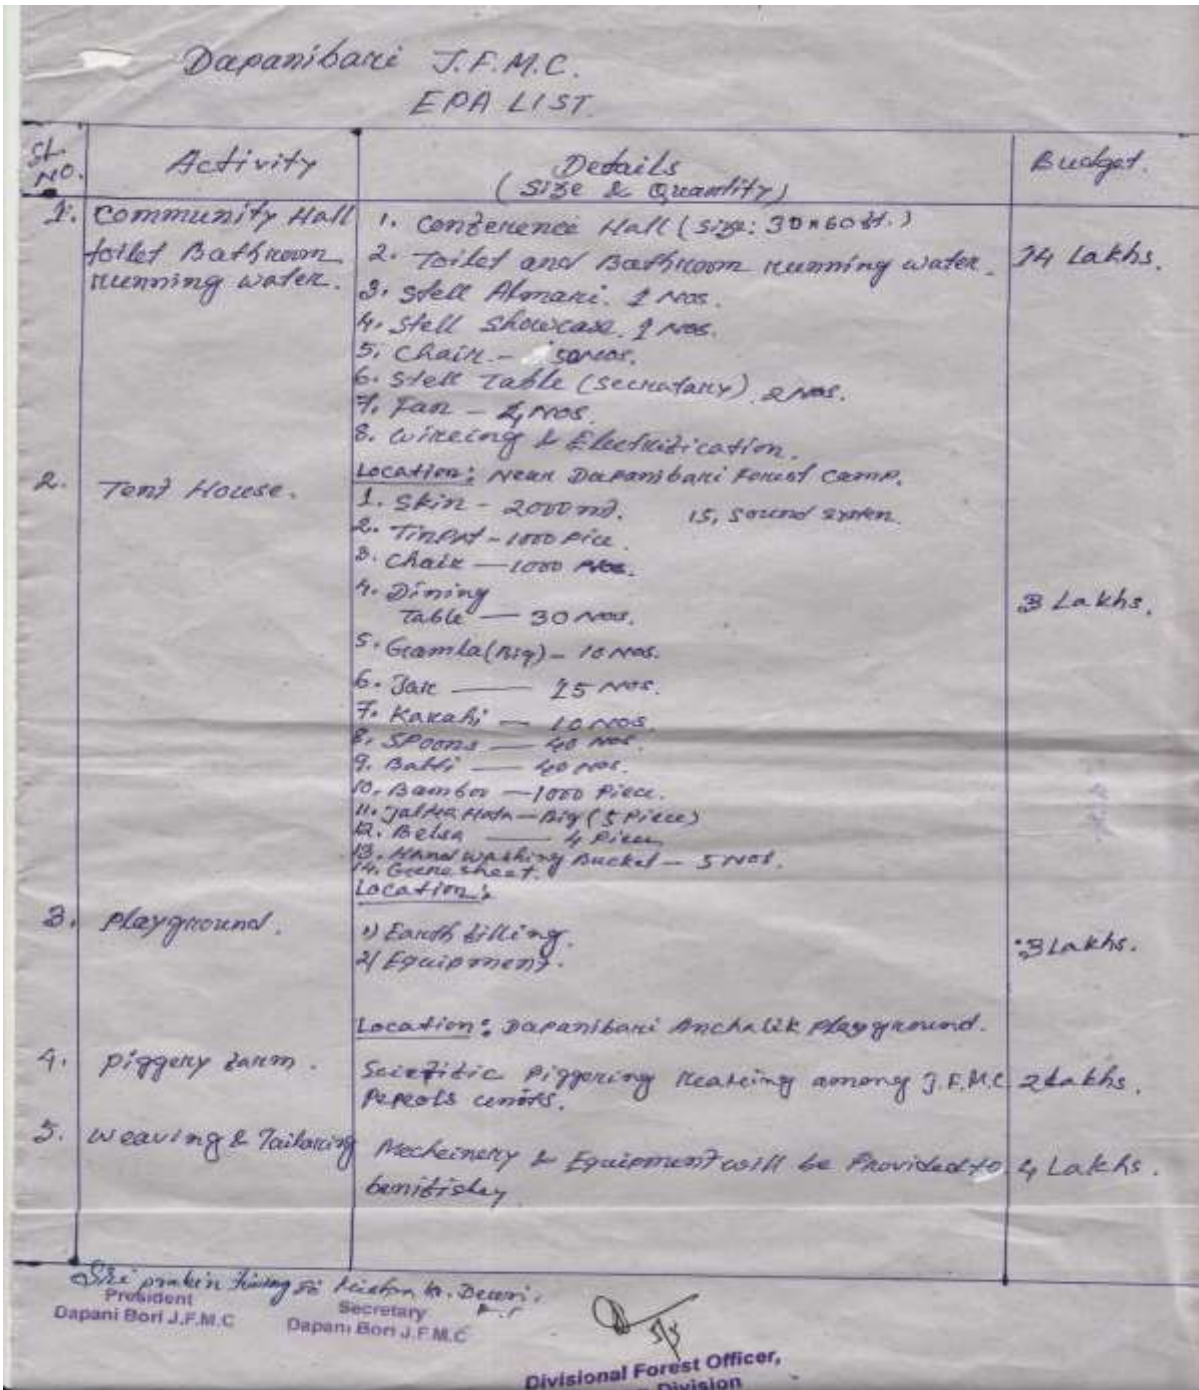 Dapanibari J.F.M.C.
EPA LIST
SL. NO. Activity Details (Size & Quantity) Budget.
1. Community Hall toilet Bathroom running water.
1. Conference Hall (size: 30x60 ft.)
2. Toilet and Bathroom running water.
14 Lakhs.
3. Stell Almari. 1 Nos.
4. Stell Showcase. 1 Nos.
5. Chair - 50 Nos.
6. Stell Table (Secratary) 2 Nos.
7. Fan - 4 Nos.
8. Wireing & Electrification.
Location: Near Dapanibari Forest Camp.
2. Tent House.
1. Skin - 2000 md. 15, Sound system.
2. Tinpat - 1000 Pice.
3. Chair - 1000 Nos.
4. Dining
Table - 30 Nos.
3 Lakhs.
5. Gamla (Big) - 10 Nos.
6. Jar - 15 Nos.
7. Karahi - 10 Nos.
8. Spoons - 40 Nos.
9. Balti - 40 Nos.
10. Bamboo - 1000 Piece.
11. Hata - Big (5 Piece)
12. Belsa - 4 Piece
13. Hand washing Bucket - 5 Nos.
14. Grene sheet.
Location:
3. Playground.
1) Earth filling.
2) Equipment.
3 Lakhs.
Location: Dapanibari Anchalik Playground.
4. Piggery farm.
Scientific Piggering reareing among J.F.M.C
2 Lakhs.
5. Weaving & Tailoring
Mecheinery & Equipment will be Provided to
4 Lakhs.
President
Dapani Bori J.F.M.C
Secretary
Dapani Bori J.F.M.C
5/5
Divisional Forest Officer,
Division